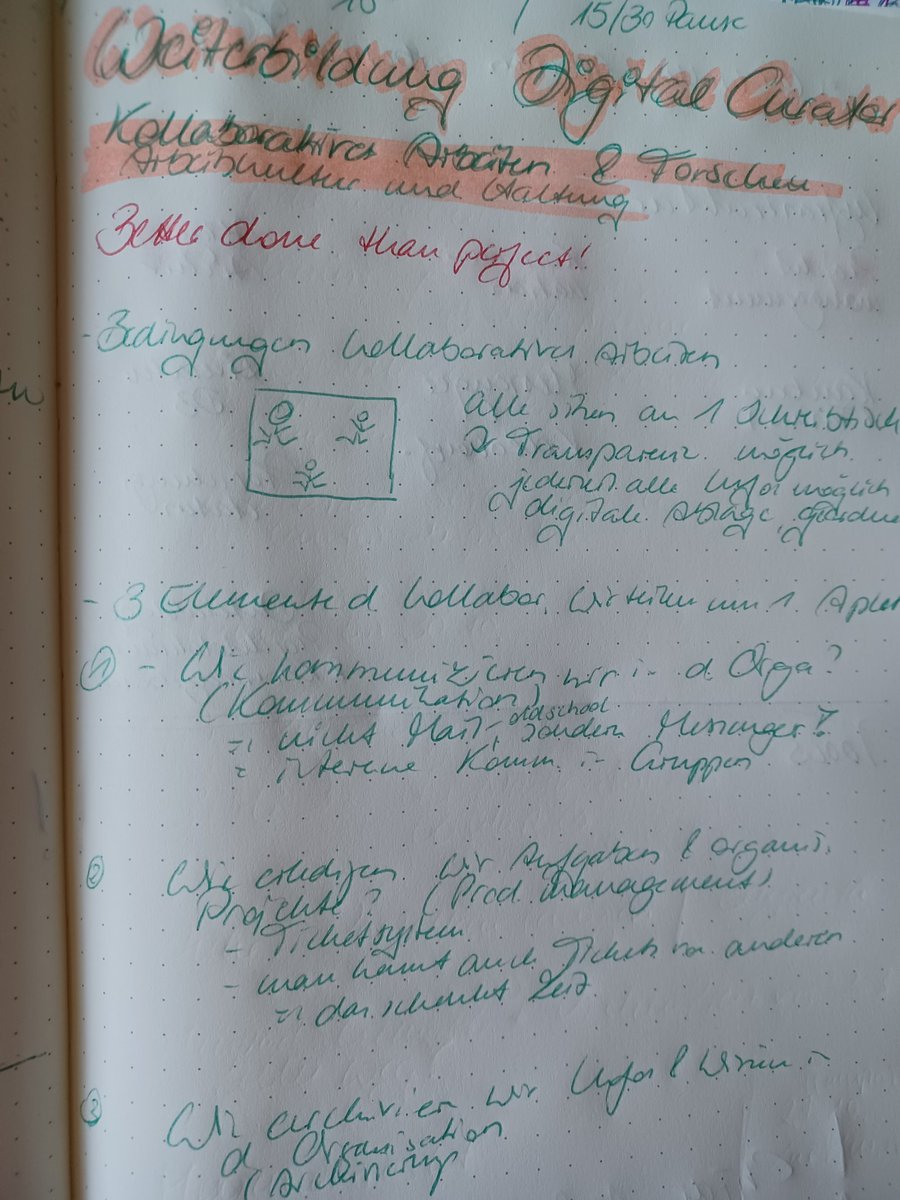 15/30 Pause
Weiterbildung Digital Curator
Kollaboratives Arbeiten & Forschen
Arbeitskultur und Haltung
Better done than perfect!
- Bedingungen kollaboratives Arbeiten
alle sitzen an 1 Schreibtisch
Transparenz möglich
alle Infos möglich
digitale Ablage,
- 3 Elemente d. Kollabor.
① - Wie kommunizieren wir in d Orga?
(Kommunikation)
oldschool
= nicht Mail, sondern Messenger!
= interne Komm. in Gruppen
② Wie erledigen wir Aufgaben & organis.
Projekte? (Prod. Management)
- Ticketsystem
- man kennt auch Tickets von anderen
= das schenkt Zeit
③ Wie archivieren wir Infos & Wissen in
d Organisation